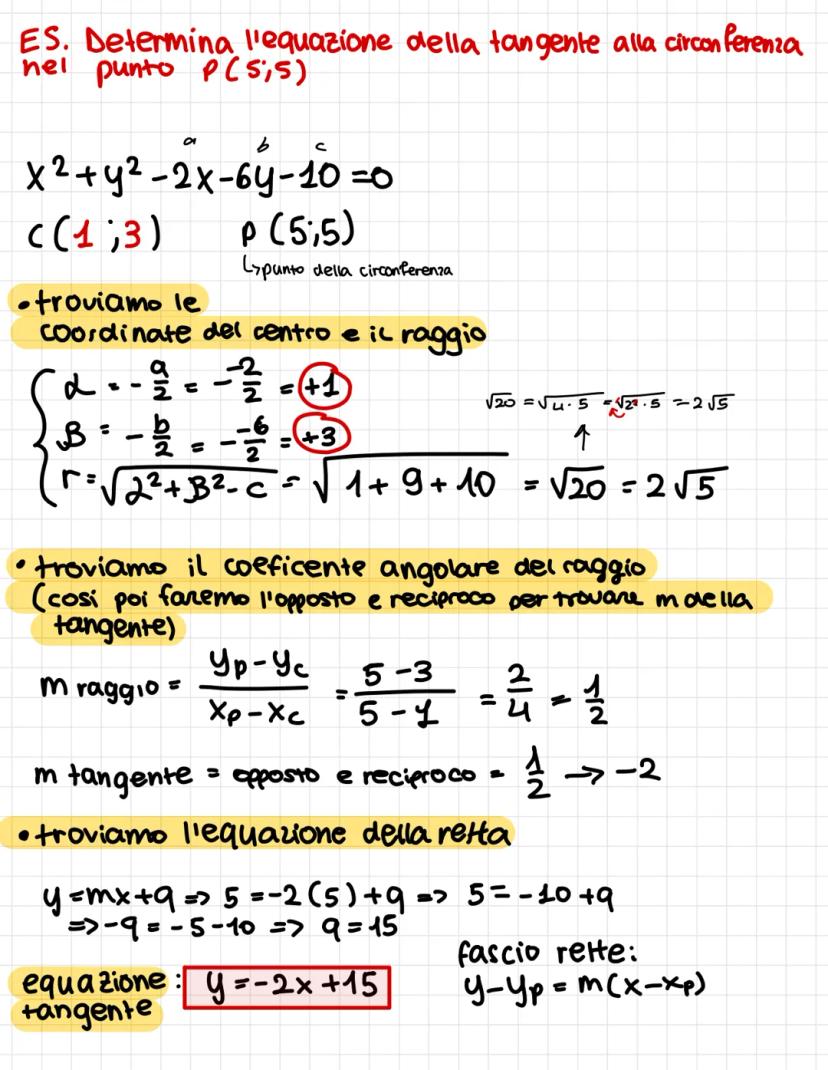 ES. Determina l'equazione della tangente alla circonferenza
nel punto P(5;5)
a b c
x²+y²-2x-6y-10=0
C(1;3) P(5;5)
↳punto della circonferenza
• troviamo le
coordinate del centro e il raggio
α = -a/2 = - -2/2 = +1
√20 = √4·5 = √2²·5 = 2√5
β = -b/2 = - -6/2 = +3
↑
r = √α²+β²-c = √1+9+10 = √20 = 2√5
• troviamo il coeficente angolare del raggio
(così poi faremo l'opposto e reciproco per trovare m della
tangente)
m raggio = yp-yc/xp-xc = 5-3/5-1 = 2/4 = 1/2
m tangente = opposto e reciproco = 1/2 → -2
• troviamo l'equazione della retta
y=mx+q => 5=-2(5)+q => 5=-10+q
=>-q=-5-10 => q=15
fascio rette:
equazione: y=-2x+15 y-yp=m(x-xp)
tangente